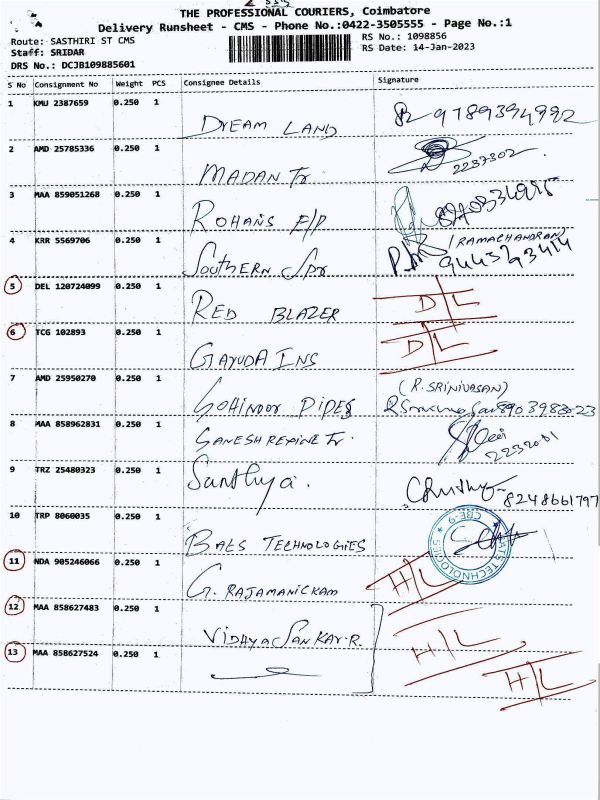 THE PROFESSIONAL COURIERS, Coimbatore
Delivery Runsheet - CMS - Phone No.:0422-3505555 - Page No.:1
Route: SASTHIRI ST CMS RS No.: 1098856
Staff: SRIDAR RS Date: 14-Jan-2023
DRS No.: DCJB109885601
S No Consignment No Weight PCS Consignee Details Signature
1 KMU 2387659 0.250 1 DREAM LAND 9789394992
2 AMD 25785336 0.250 1 MADAN Tr. 2237302
3 MAA 859051268 0.250 1 ROHANS
4 KRR 5569706 0.250 1 SOUTHERN (RAMACHANDRAN)
9443293414
5 DEL 120724099 0.250 1 RED BLAZER D/L
6 TCG 102893 0.250 1 GAYUDA INS D/L
7 AMD 25950270 0.250 1 GOHINOOR PIPES (R. SRINIVASAN)
8903983023
8 MAA 858962831 0.250 1 GANESH REPINE Tr. 2232001
9 TRZ 25480323 0.250 1 Santhya. 8248661797
10 TRP 8060035 0.250 1 BAES TECHNOLOGIES CBE-9
11 NDA 905246066 0.250 1 G. RAJAMANICKAM H/L
12 MAA 858627483 0.250 1 VIDHYA SANKAR.R. H/L
13 MAA 858627524 0.250 1 H/L